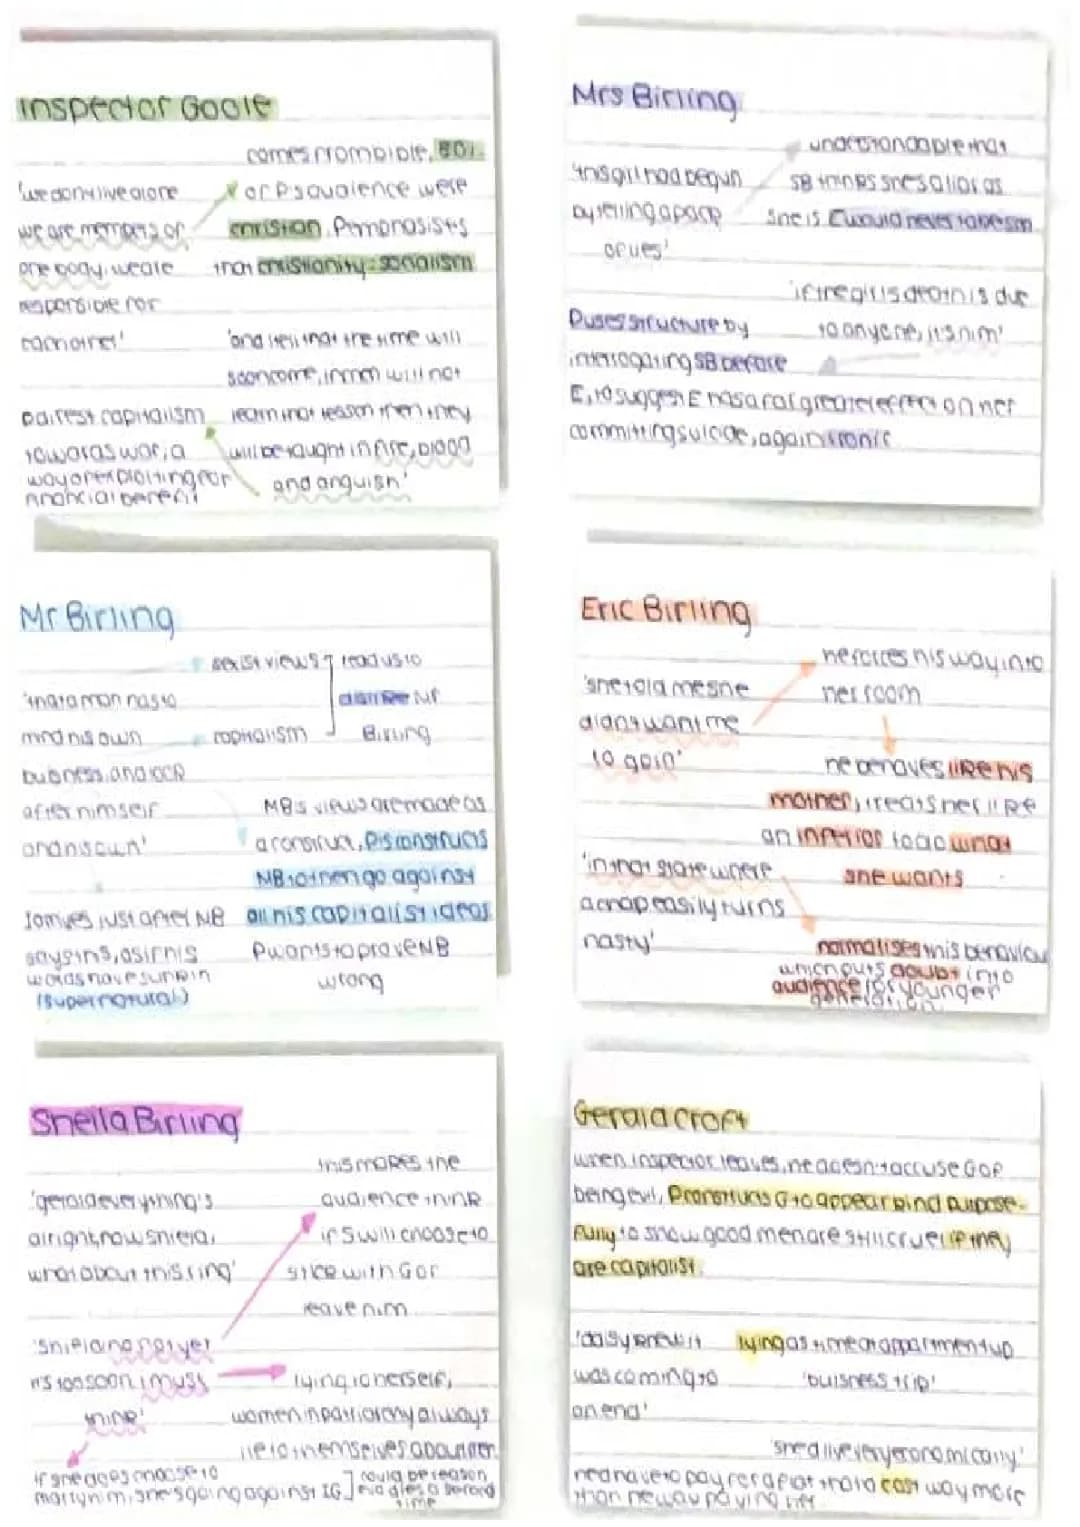 Inspector Goole
comes from bible, 80%
'we don't live alone
of P's audience were
we are members of
christian. P emphasists
one body. we are
that christianity = socialism
responsible for
eachother'
'and i tell that the time will
soon come, if men will not
P attest capitalism
learn that lesson then they
towards war, a
will be taught in fire, blood
way of exploiting for
and anguish'
financial benefit
Mrs Birling
understandable that
'this girl had begun
SB thinks shes a liar as
by telling a pack
she is
of lies'
'if the girls death is due
P uses structure by
to anyone, it's him'
interrogating SB before
E, to suggest E has a far greater effect on her
committing suicide, again ironic
Mr Birling
sexist views
lead us to
'that a man has to
dislike Mr
mind his own
capitalism
Birling
business and look
after himself
MB's views are made as
and his own'
a construct, P is constructs
MB to then go against
IG arrives just after MB
all his capitalist ideas
says this, as if his
P wants to prove MB
words have
wrong
(supernatural)
Eric Birling
he forces his way into
'she told me she
her room
didn't want me
to go in'
he behaves like his
mother, treats her like
an inferior to do what
'in that state where
she wants
a chap easily turns
nasty'
normalises this behaviour
which puts doubt into
audience for younger
generation
Sheila Birling
this makes the
'gerald everything's
audience think
alright now sheila,
if S will choose to
what about this ring'
stick with G or
leave him
'shiela no not yet
it's too soon. i must
lying to herself,
think'
women in patriarchy always
lie to themselves about men
if she does choose to
could be reason
marry him, she's going against IG
eva dies a second
time
Gerald Croft
when inspector leaves, he doesn't accuse G of
being evil, P constructs G to appear kind purpose-
fully to show good men are still cruel if they
are capitalist.
'daisy knew it
lying as time at appartment up
was coming to
'buisness trip'
an end'
'she'd live very economically'
he'd have to pay for a flat that'd cost way more
than